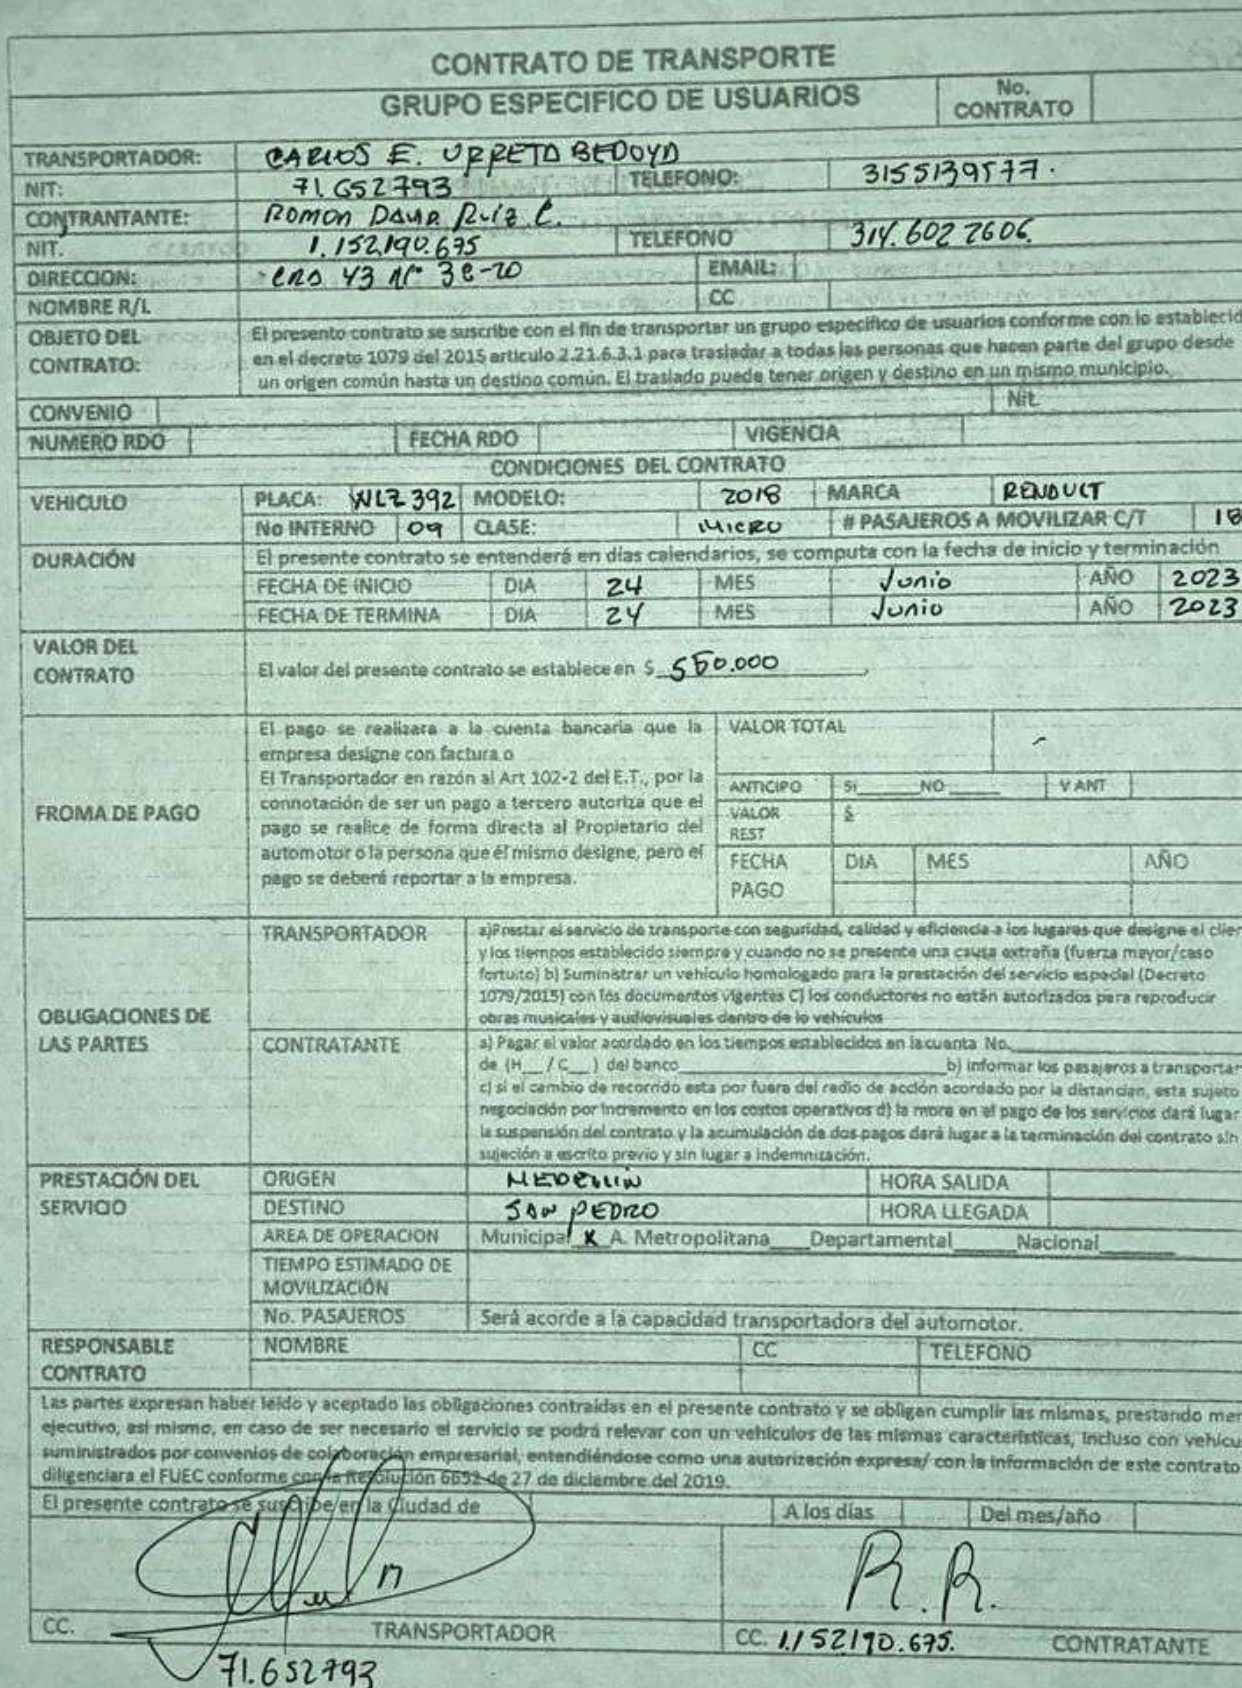 CONTRATO DE TRANSPORTE
GRUPO ESPECIFICO DE USUARIOS No. CONTRATO
TRANSPORTADOR: CARLOS E. URRETA BEDOYA
NIT: 71.652793 TELEFONO: 3155139577.
CONTRANTANTE: ROMON DAVID Ruiz C.
NIT. 1.152.190.675 TELEFONO 314.602 2606
DIRECCION: CRA 43 Nº 3C-20 EMAIL:
NOMBRE R/L CC
OBJETO DEL CONTRATO: El presento contrato se suscribe con el fin de transportar un grupo especifico de usuarios conforme con lo establecid
en el decreto 1079 del 2015 articulo 2.21.6.3.1 para trasladar a todas las personas que hacen parte del grupo desde
un origen común hasta un destino común. El traslado puede tener origen y destino en un mismo municipio.
CONVENIO Nit.
NUMERO RDO FECHA RDO VIGENCIA
CONDICIONES DEL CONTRATO
VEHICULO PLACA: WLZ 392 MODELO: 2018 MARCA RENAULT
No INTERNO 09 CLASE: MICRO # PASAJEROS A MOVILIZAR C/T 18
DURACIÓN El presente contrato se entenderá en días calendarios, se computa con la fecha de inicio y terminación
FECHA DE INICIO DIA 24 MES Junio AÑO 2023
FECHA DE TERMINA DIA 24 MES Junio AÑO 2023
VALOR DEL CONTRATO El valor del presente contrato se establece en $ 550.000
FROMA DE PAGO El pago se realizara a la cuenta bancaria que la
empresa designe con factura o
El Transportador en razón al Art 102-2 del E.T., por la
connotación de ser un pago a tercero autoriza que el
pago se realice de forma directa al Propietario del
automotor o la persona que él mismo designe, pero el
pago se deberá reportar a la empresa.
VALOR TOTAL
ANTICIPO SI NO V ANT
VALOR REST $
FECHA PAGO DIA MES AÑO
OBLIGACIONES DE LAS PARTES
TRANSPORTADOR a)Prestar el servicio de transporte con seguridad, calidad y eficiencia a los lugares que designe el clien
y los tiempos establecido siempre y cuando no se presente una causa extraña (fuerza mayor/caso
fortuito) b) Suministrar un vehículo homologado para la prestación del servicio especial (Decreto
1079/2015) con los documentos vigentes C) los conductores no están autorizados para reproducir
obras musicales y audiovisuales dentro de lo vehículos
CONTRATANTE a) Pagar el valor acordado en los tiempos establecidos en la cuenta No.
de (H__/C__) del banco b) informar los pasajeros a transportar
c) si el cambio de recorrido esta por fuera del radio de acción acordado por la distancian, esta sujeto
negociación por incremento en los costos operativos d) la mora en el pago de los servicios dará lugar
la suspensión del contrato y la acumulación de dos pagos dará lugar a la terminación del contrato sin
sujeción a escrito previo y sin lugar a indemnización.
PRESTACIÓN DEL SERVICIO
ORIGEN MEDELLIN HORA SALIDA
DESTINO SAN PEDRO HORA LLEGADA
AREA DE OPERACION Municipal X A. Metropolitana____Departamental____Nacional____
TIEMPO ESTIMADO DE MOVILIZACIÓN
No. PASAJEROS Será acorde a la capacidad transportadora del automotor.
RESPONSABLE CONTRATO NOMBRE CC TELEFONO
Las partes expresan haber leído y aceptado las obligaciones contraídas en el presente contrato y se obligan cumplir las mismas, prestando mer
ejecutivo, así mismo, en caso de ser necesario el servicio se podrá relevar con un vehículos de las mismas características, incluso con vehicu
suministrados por convenios de colaboración empresarial, entendiéndose como una autorización expresa/ con la información de este contrato
diligenciara el FUEC conforme con la Resolución 6652 de 27 de diciembre del 2019.
El presente contrato se suscribe/en la Ciudad de A los días Del mes/año
R.R.
CC. TRANSPORTADOR CC. 1.152190.675. CONTRATANTE
71.652793